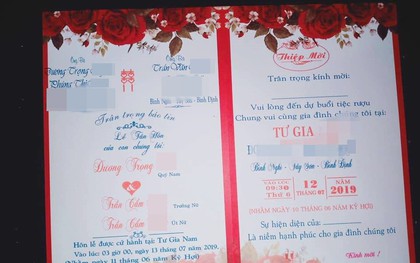 Ông Bà
Dương Trọng
Phùng Thị
Ông Bà
Trần Văn
Bình Nghi - Tây Sơn - Bình Định
Trân trọng báo tin
Lễ Tân Hôn
của con chúng tôi:
Dương Trọng
Quý Nam
Trần Cẩm
Trưởng Nữ
Trần Cẩm
Út Nữ
Hôn lễ được cử hành tại: Tư Gia Nam
Vào lúc: 03 giờ 00, ngày 13 tháng 07 năm 2019,
(Nhằm ngày 11 tháng 06 năm Kỷ Hợi)
Thiệp Mời
Trân trọng kính mời:
Vui lòng đến dự buổi tiệc rượu
Chung vui cùng gia đình chúng tôi tại:
TƯ GIA
Bình Nghi - Tây Sơn - Bình Định
VÀO LÚC
09:30
Thứ 6
12
THÁNG 07
NĂM
2019
(NHẰM NGÀY 10 THÁNG 06 NĂM KỶ HỢI)
Sự hiện diện của:
Là niềm hạnh phúc cho gia đình chúng tôi
Kính mời!